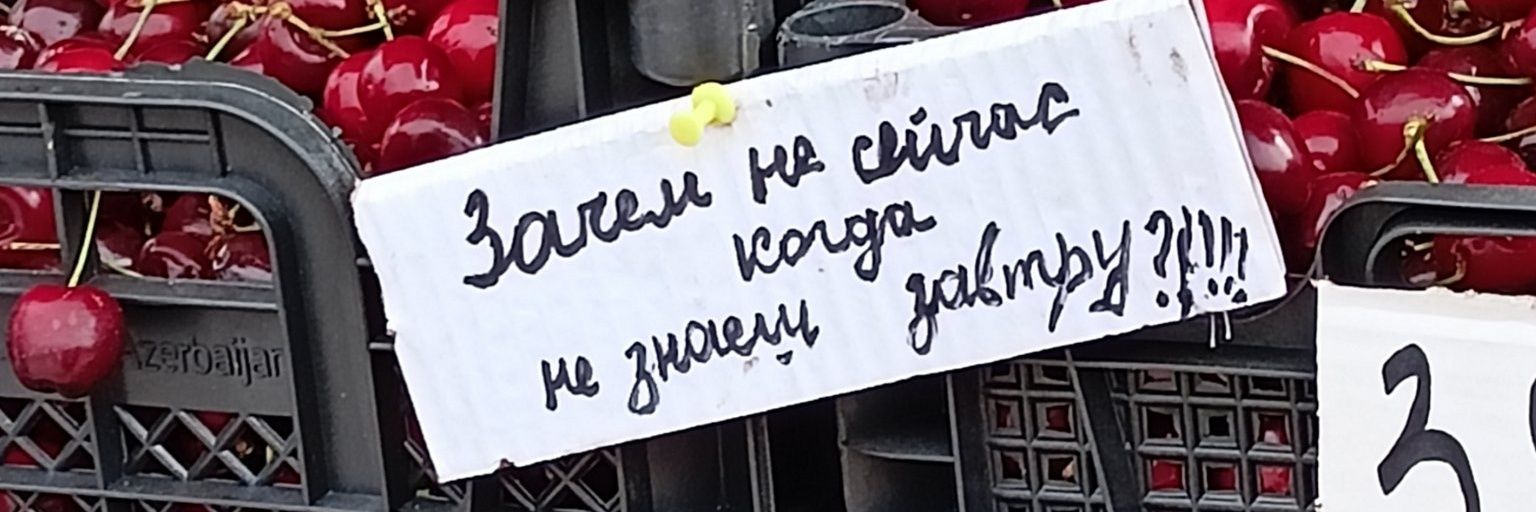 Зачем не сейчас
когда
не знаещ завтру?!!!!
Azerbaijan
3